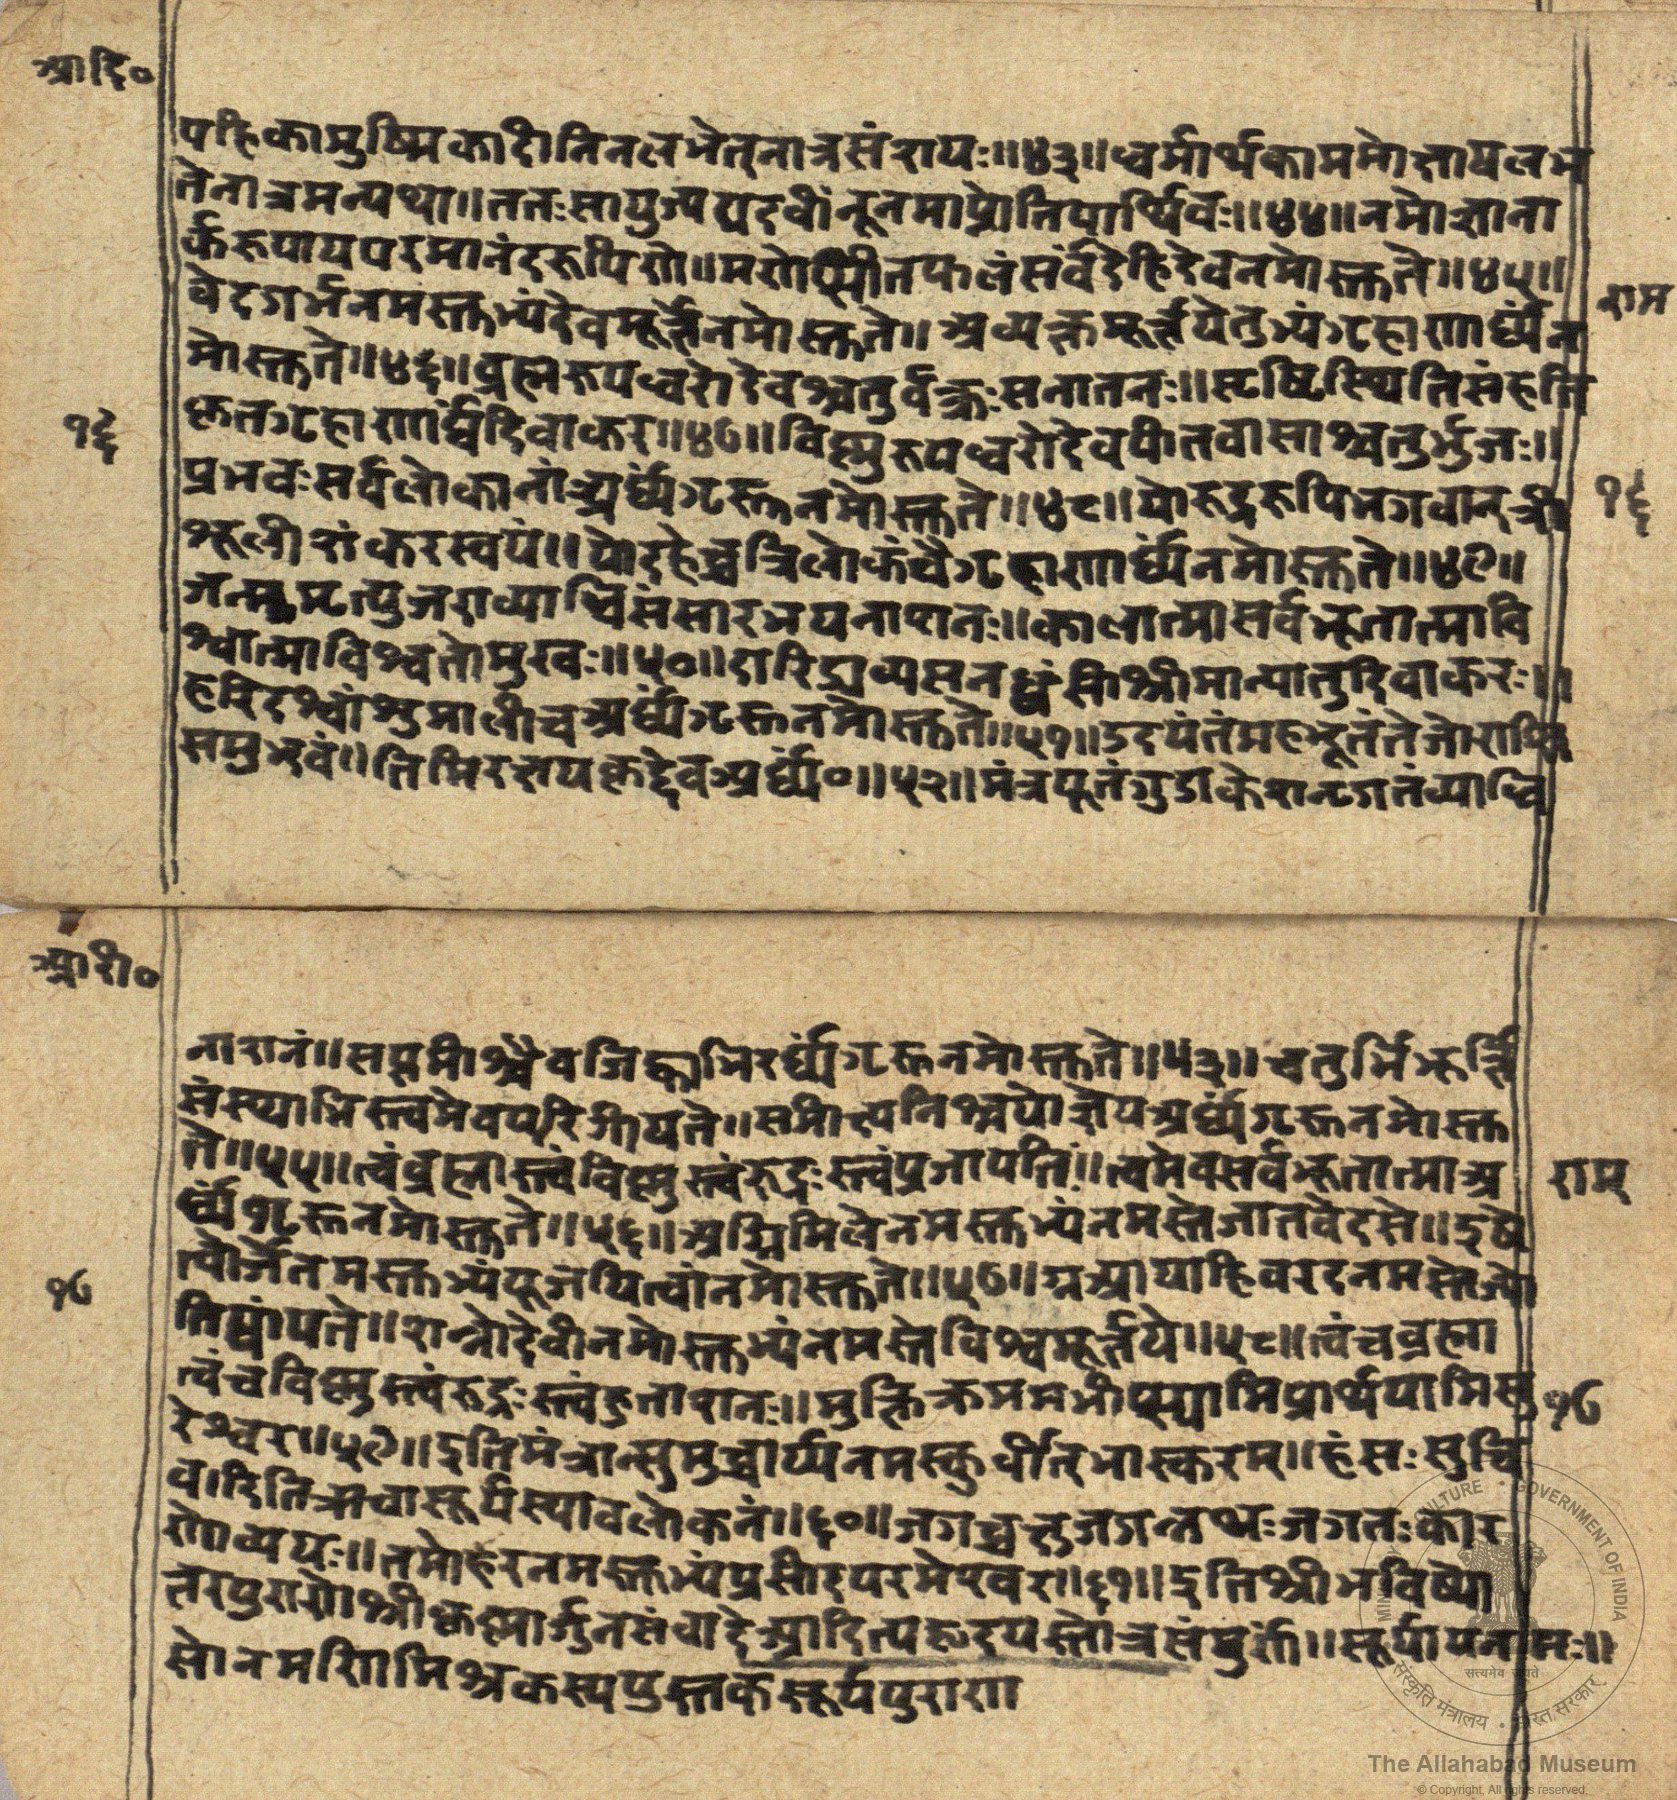 आदि०
पहिकामुष्मिकादीनिनलभेत्नात्रसंशयः॥४३॥धर्मार्थकाममोक्षायलभ
तेनात्रमन्यथा॥ततःसायुज्यपदवींनूनमाप्नोतिपार्थिवः॥४४॥नमोज्ञाना
र्करूपायपरमानंदरूपिणे॥मणेप्सीतफलंसर्वंदेहिदेवनमोस्तुते॥४५॥
वेदगर्भनमस्तुभ्यंदेवमूर्त्तेनमोस्तुते॥अव्यक्तमूर्त्तयेतुभ्यंगृहाणार्घ्यंन
राम
मोस्तुते॥४६॥ब्रह्मरूपधरोदेवश्चतुर्वक्त्रःसनातनः॥सृष्टिस्थितिसंहृति
१६
कृतगृहाणार्घ्यंदिवाकर॥४७॥विष्णुरूपधरोदेवपीतवासाश्चतुर्भुजः॥
प्रभवःसर्वलोकानांअर्घ्यंगृह्णनमोस्तुते॥४८॥योरुद्ररूपिभगवान्त्री
१६
श्रूलीशंकरस्वयं॥योदहेच्चत्रिलोकंवैगृहाणार्घ्यंनमोस्तुते॥४९॥
जन्ममृत्युजराव्याधिसंसारभयनाशनः॥कालात्मासर्वभूतात्मावि
श्वात्माविश्वतोमुखः॥५०॥दारिद्राव्यसनध्वंसीश्रीमान्पातुदिवाकरः॥
हरिदश्वांशुमालीचअर्घ्यंगृह्णनमोस्तुते॥५१॥उदयंतंमहद्भूतंतेजोराशि
समुद्भवं॥तिमिरक्षयकृद्देवअर्घ्यं०॥५२॥मंत्रपूतंगुडाकेशन्टगतंव्याधि
आदी०
नाशनं॥सप्तमीश्चैवजिह्वाभिरर्घ्यंगृह्णनमोस्तुते॥५३॥चतुर्भिर्मूर्त्ति
संस्थाभिस्त्वमेवपरिगीयते॥समीक्ष्यनिश्चयोज्ञेयअर्घ्यंगृह्णनमोस्तु
ते॥५५॥त्वंब्रह्मास्त्वंविष्णुस्त्वंरुद्रःस्त्वंप्रजापतिः॥त्वमेवसर्वभूतात्माअ
राम
र्घ्यंगृह्णनमोस्तुते॥५६॥अग्निमिलेनमस्तुभ्यंनमस्तेजातवेदसे॥इषे
त्वोर्जेनमस्तुभ्यंपूजयित्वांनमोस्तुते॥५७॥ग्नआयाहिवरदनमस्तेज्यो
१७
तिषांपते॥शन्नोदेवीनमोस्तुभ्यंनमस्तेविश्वमूर्त्तये॥५८॥त्वंचब्रह्मा
त्वंचविष्णुस्त्वंरुद्रःस्त्वंहुताशनः॥मुक्तिकाममभीप्स्यामिप्रार्थयामिसु
१७
रेश्वर॥५९॥इतिमंत्रान्सुमुच्चार्य्यनमस्कुर्वीत्भास्करम्॥हंसःसुचि
वारितिऋचासूर्यस्यावलोकनं॥६०॥जगच्चक्षुजगन्नथःजगतःकार
णोव्ययः॥तमोहरनमस्तुभ्यंप्रसीदपरमेश्वर॥६१॥इतिश्रीभविष्यो
तरपुराणेश्रीकृष्णार्जुनसंवादेआदित्यहृदयस्तोत्रसंपुर्णं॥सूर्यायनामः॥
सोनमणिमिश्रकस्यपुस्तकंसूर्यपुराण
MINISTRY OF CULTURE · GOVERNMENT OF INDIA
सत्यमेव जयते
संस्कृति मंत्रालय · भारत सरकार
The Allahabad Museum
© Copyright, All rights reserved.